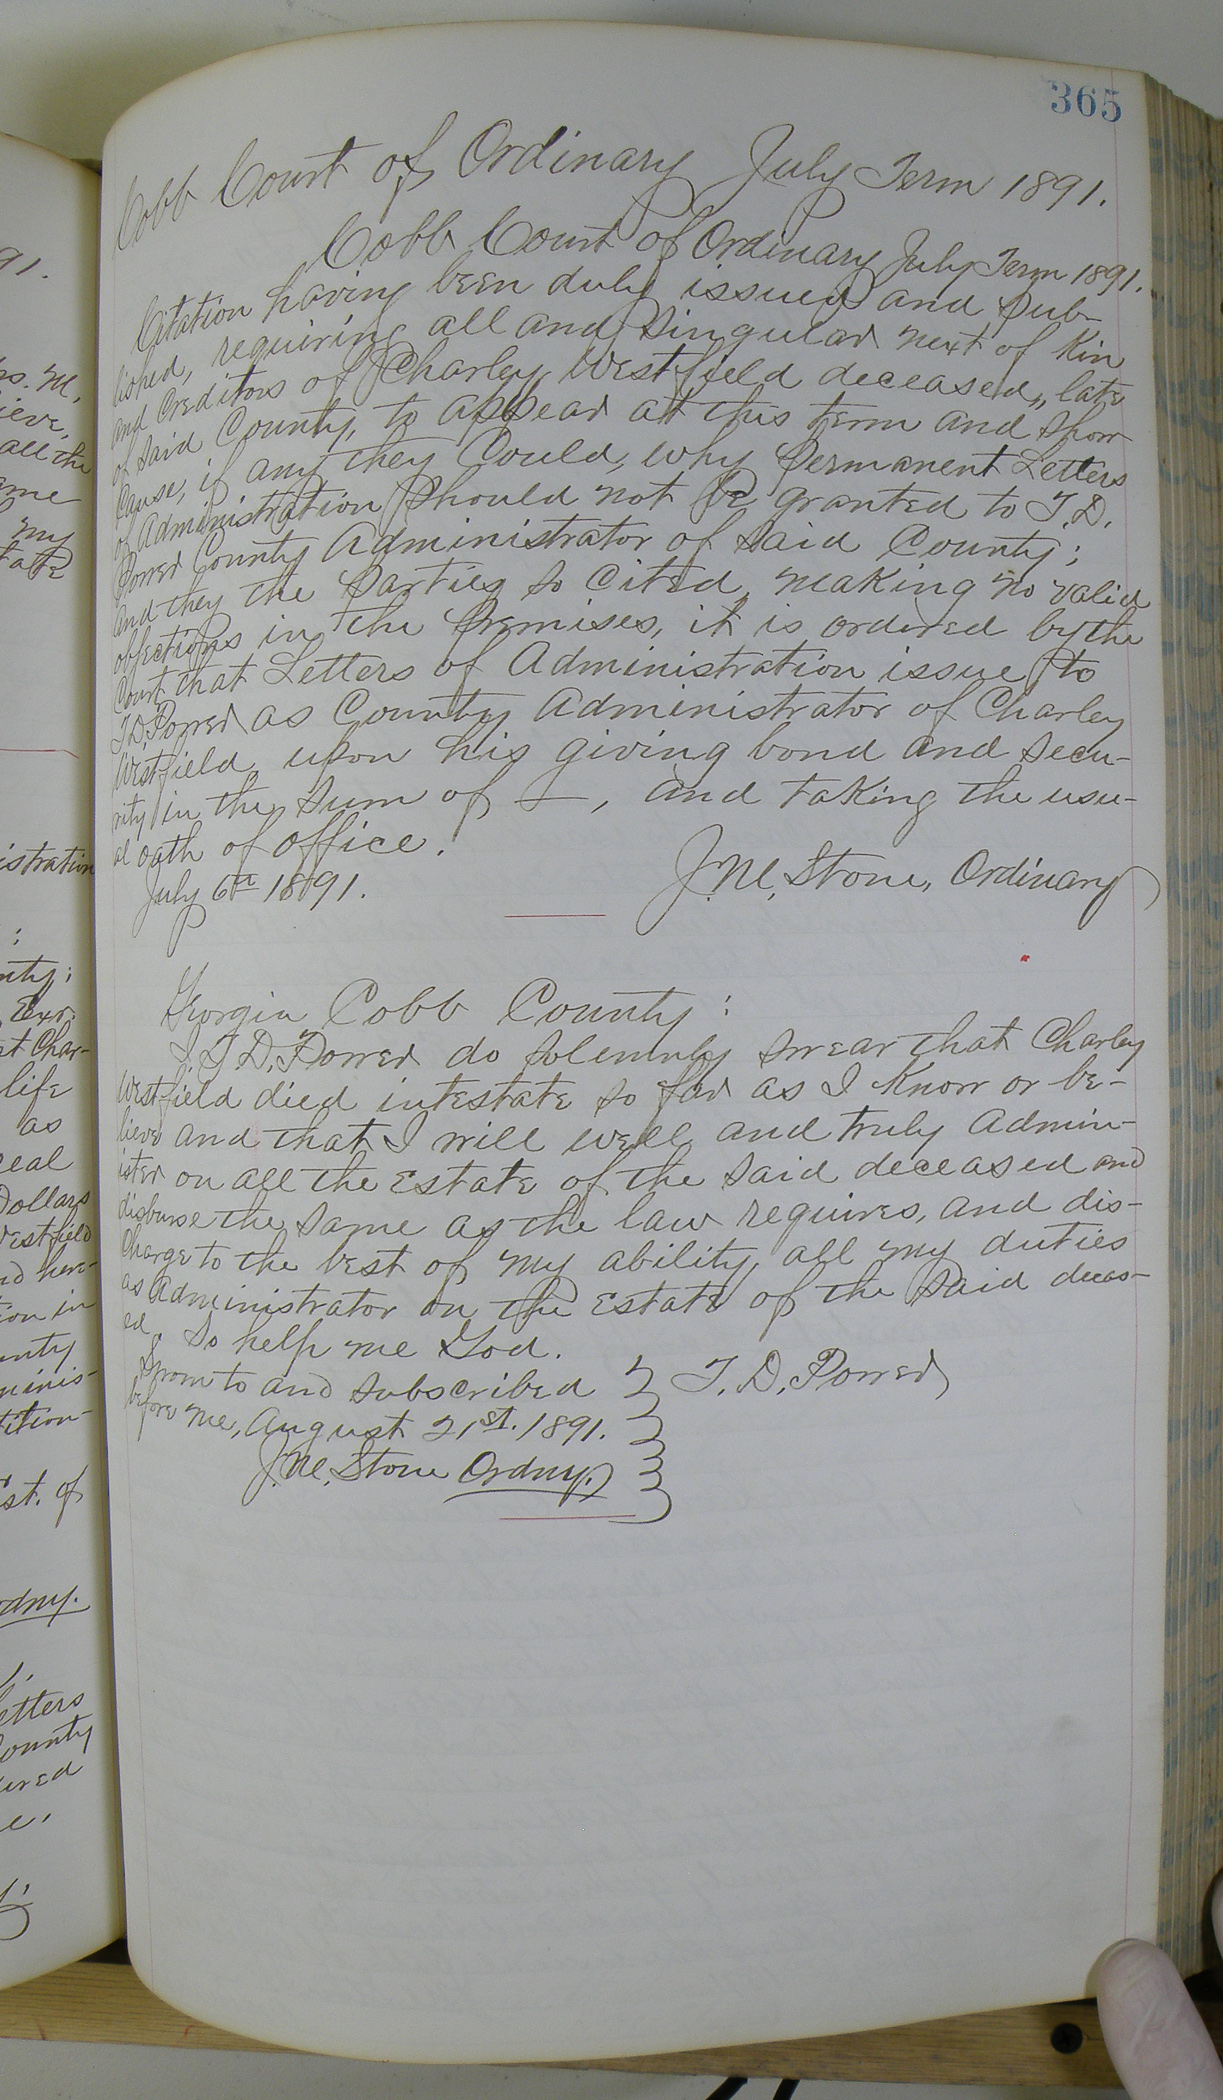 365
Cobb Court of Ordinary July Term 1891.
Cobb Court of Ordinary July Term 1891.
Citation having been duly issued and Pub-
lished, requiring all and singular next of Kin
and Creditors of Charley Westfield deceased, late
of said County, to appear at this term and show
Cause, if any they Could, why Permanent Letters
of Administration should not be granted to T. D.
Power County Administrator of said County;
and they the Parties so Cited making no valid
objections in the Premises, it is ordered by the
Court that Letters of Administration issue to
T. D. Power as County Administrator of Charley
Westfield upon his giving bond and secu-
rity in the sum of —, and taking the usu-
al oath of office.
July 6th 1891.
J. M. Stone, Ordinary
Georgia Cobb County:
I. T. D. Power do solemnly swear that Charley
Westfield died intestate so far as I Know or be-
lieve and that I will well and truly Admin-
ister on all the Estate of the said deceased and
disburse the same as the law requires, and dis-
charge to the best of my ability all my duties
as Administrator on the Estate of the said deceas-
ed. So help me God.
Sworn to and subscribed
T. D. Power
before me, August 21st. 1891.
J. M. Stone Ordny.
91.
all the
ame
my
istration
nty;
Exr.
at Char-
life
as
real
Dollars
Westfield
nd here-
ion in
unty
minis-
tition-
st. of
rdny.
etters
ounty